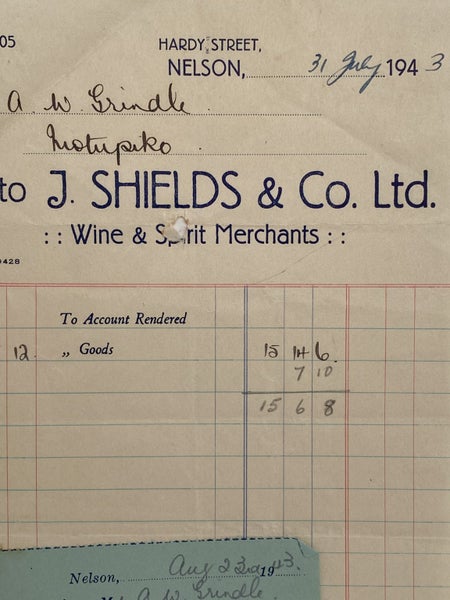 05
HARDY STREET,
NELSON, 31 July 1943
A. W. Grindle
Motupiko
to J. SHIELDS & Co. Ltd.
:: Wine & Spirit Merchants ::
9428
To Account Rendered
12. „ Goods 15 14 6.
7 10
15 6 8
Nelson, Aug 23rd 1943.
A. W. Grindle